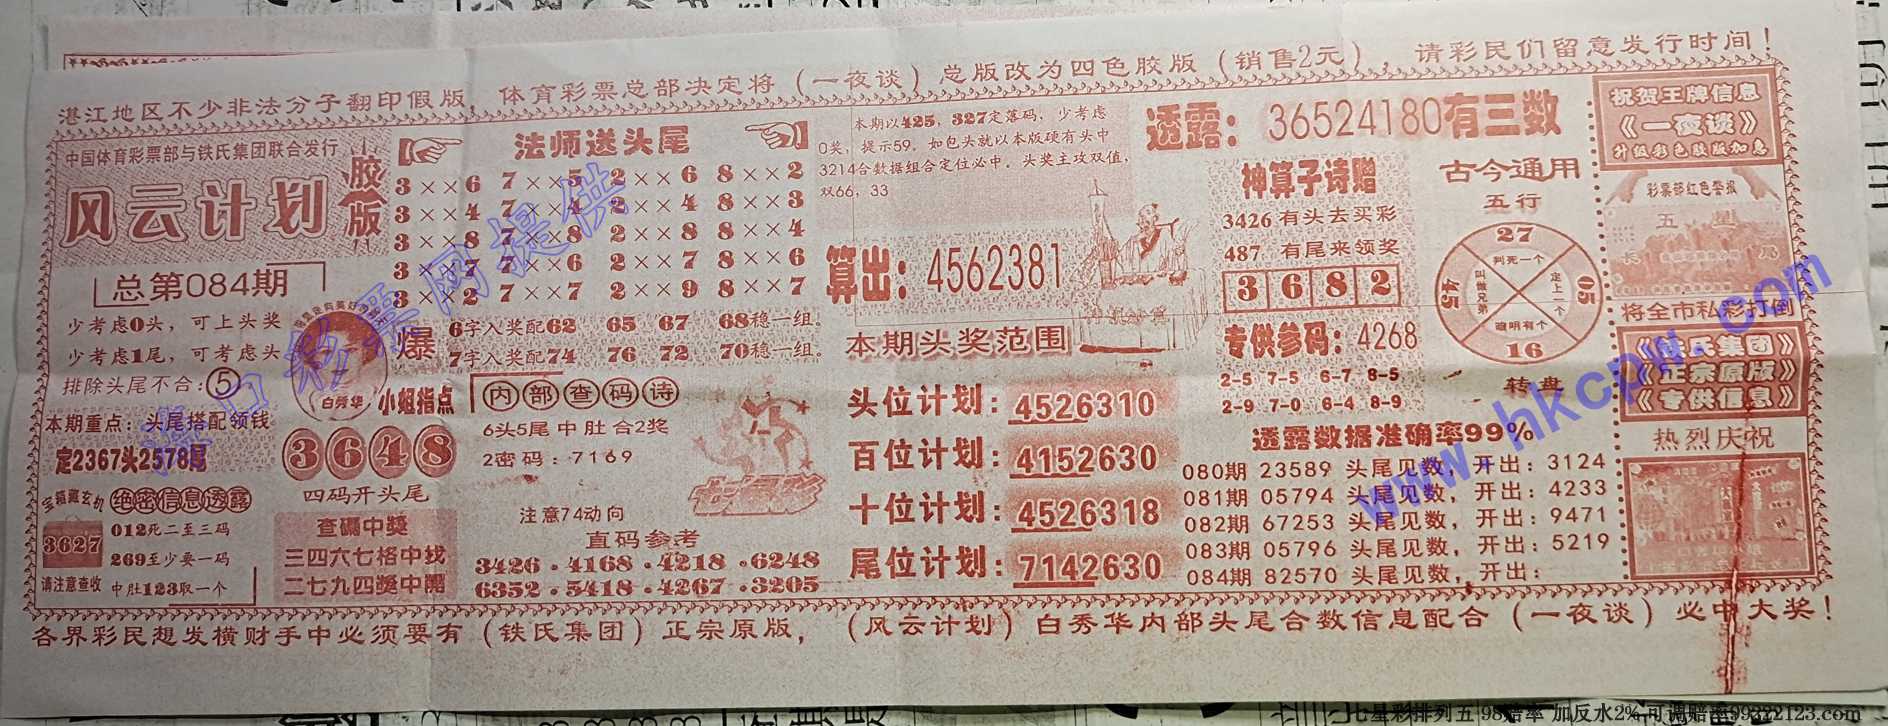 湛江地区不少非法分子翻印假版，体育彩票总部决定将（一夜谈）总版改为四色胶版（销售2元），请彩民们留意发行时间！
中国体育彩票部与铁氏集团联合发行
风云计划
胶版
总第084期
少考虑0头，可上头奖
少考虑1尾，可考虑头
排除头尾不合：⑤
本期重点：头尾搭配领钱
定2367头2578尾
宝箱藏玄机
绝密信息透露
3627
请注意查收
012死二至三码
269至少要一码
中肚123取一个
法师送头尾
3××6 7××5 2××6 8××2
3××4 7××4 2××4 8××3
3××8 7××8 2××8 8××4
3××7 7××6 2××7 8××6
3××2 7××7 2××9 8××7
爆
6字入奖配62 65 67 68稳一组。
7字入奖配74 76 72 70稳一组。
白秀华
小姐指点
3648
四码开头尾
查碼中獎
三四六七格中找
二七九四獎中開
内部查码诗
6头5尾中肚合2奖
2密码：7169
注意74动向
直码参考
3426·4168·4218·6248
6352·5418·4267·3205
七星彩
本期以425，327定落码，少考虑
0奖，提示59。如包头就以本版硬有头中
3214合数据组合定位必中。头奖主攻双值，
双66，33
算出：4562381
本期头奖范围
头位计划：4526310
百位计划：4152630
十位计划：4526318
尾位计划：7142630
透露：36524180有三数
神算子诗赠
3426有头去买彩
487，有尾来领奖
3682
专供参码：4268
2-5 7-5 6-7 8-5
2-9 7-0 6-4 8-9
古今通用
五行
27
判死一个
45
叫做兄弟
定上一个
05
聪明有个
16
转盘
透露数据准确率99%
080期 23589 头尾见数，开出：3124
081期 05794 头尾见数，开出：4233
082期 67253 头尾见数，开出：9471
083期 05796 头尾见数，开出：5219
084期 82570 头尾见数，开出：
祝贺王牌信息
《一夜谈》
升级彩色胶版加急
彩票部红色警报
五星
将全市私彩打倒
《铁氏集团》
《正宗原版》
《专供信息》
热烈庆祝
各界彩民想发横财手中必须要有（铁氏集团）正宗原版，（风云计划）白秀华内部头尾合数信息配合（一夜谈）必中大奖！
海口彩票网提供
www.hkcpw.com
七星彩排列五 98赔率 加反水2% 可调赔率99322123.com